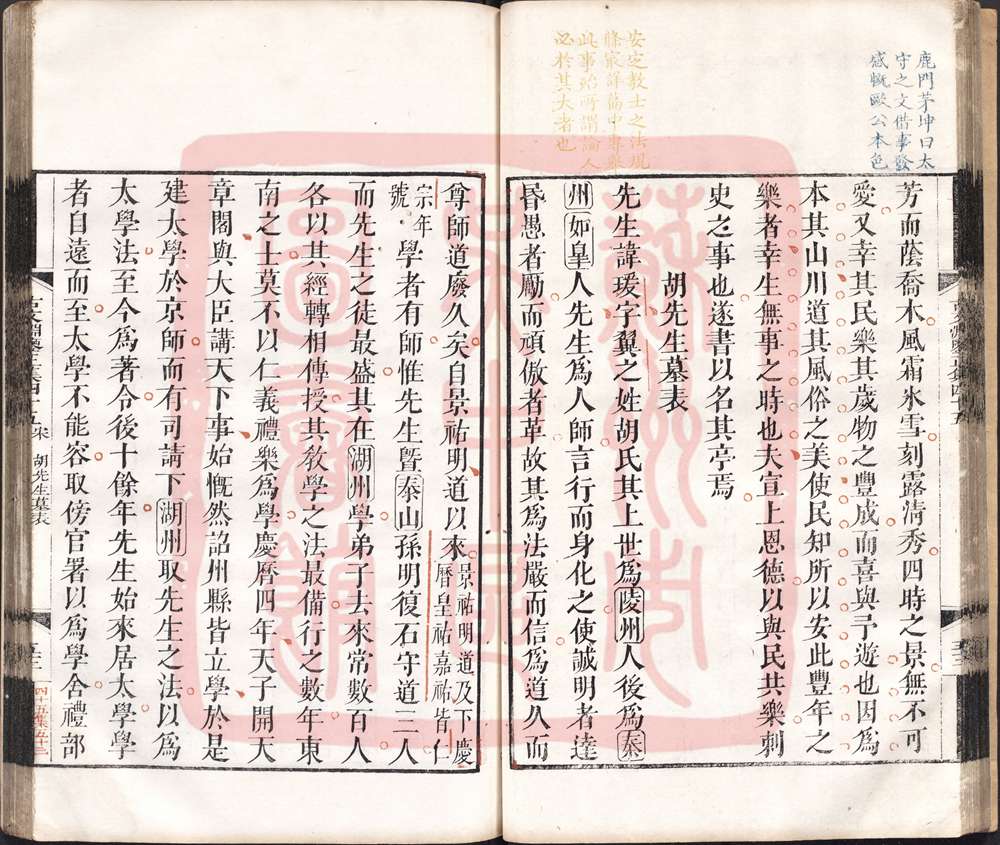 鹿門茅坤曰太
守之文借事發
感慨歐公本色
芳而蔭喬木風霜氷雪刻露清秀四時之景無不可
愛又幸其民樂其歲物之豐成而喜與予遊也因爲
本其山川道其風俗之美使民知所以安此豐年之
樂者幸生無事之時也夫宣上恩德以與民共樂刺
史之事也遂書以名其亭焉
胡先生墓表
先生諱瑗字翼之姓胡氏其上世爲陵州人後爲泰
州如皇人先生爲人師言行而身化之使誠明者達
昏愚者勵而頑傲者革故其爲法嚴而信爲道久而
安定教士之法現
此事始所謂論人
必於其大者也
尊師道廢久矣自景祐明道以來景祐明道及下慶
曆皇祐嘉祐皆仁
宗年
號學者有師惟先生暨泰山孫明復石守道三人
而先生之徒最盛其在湖州學弟子去來常數百人
各以其經轉相傳授其敎學之法最備行之數年東
南之士莫不以仁義禮樂爲學慶曆四年天子開天
章閣與大臣講天下事始慨然詔州縣皆立學於是
建太學於京師而有司請下湖州取先生之法以爲
太學法至今爲著令後十餘年先生始來居太學學
者自遠而至太學不能容取傍官署以爲學舍禮部
胡先生墓表
四十五集五十三